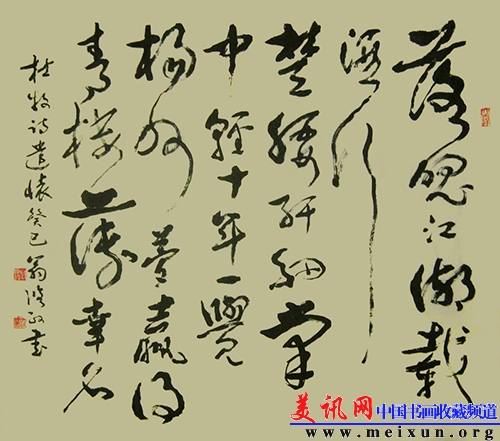 落魄江湖載
酒行
楚腰纤細掌
中輕十年一覺
揚州夢贏得
青樓薄幸名
杜牧诗遣懷癸巳翁书
美讯网
中国书画收藏频道
www.meixun.org